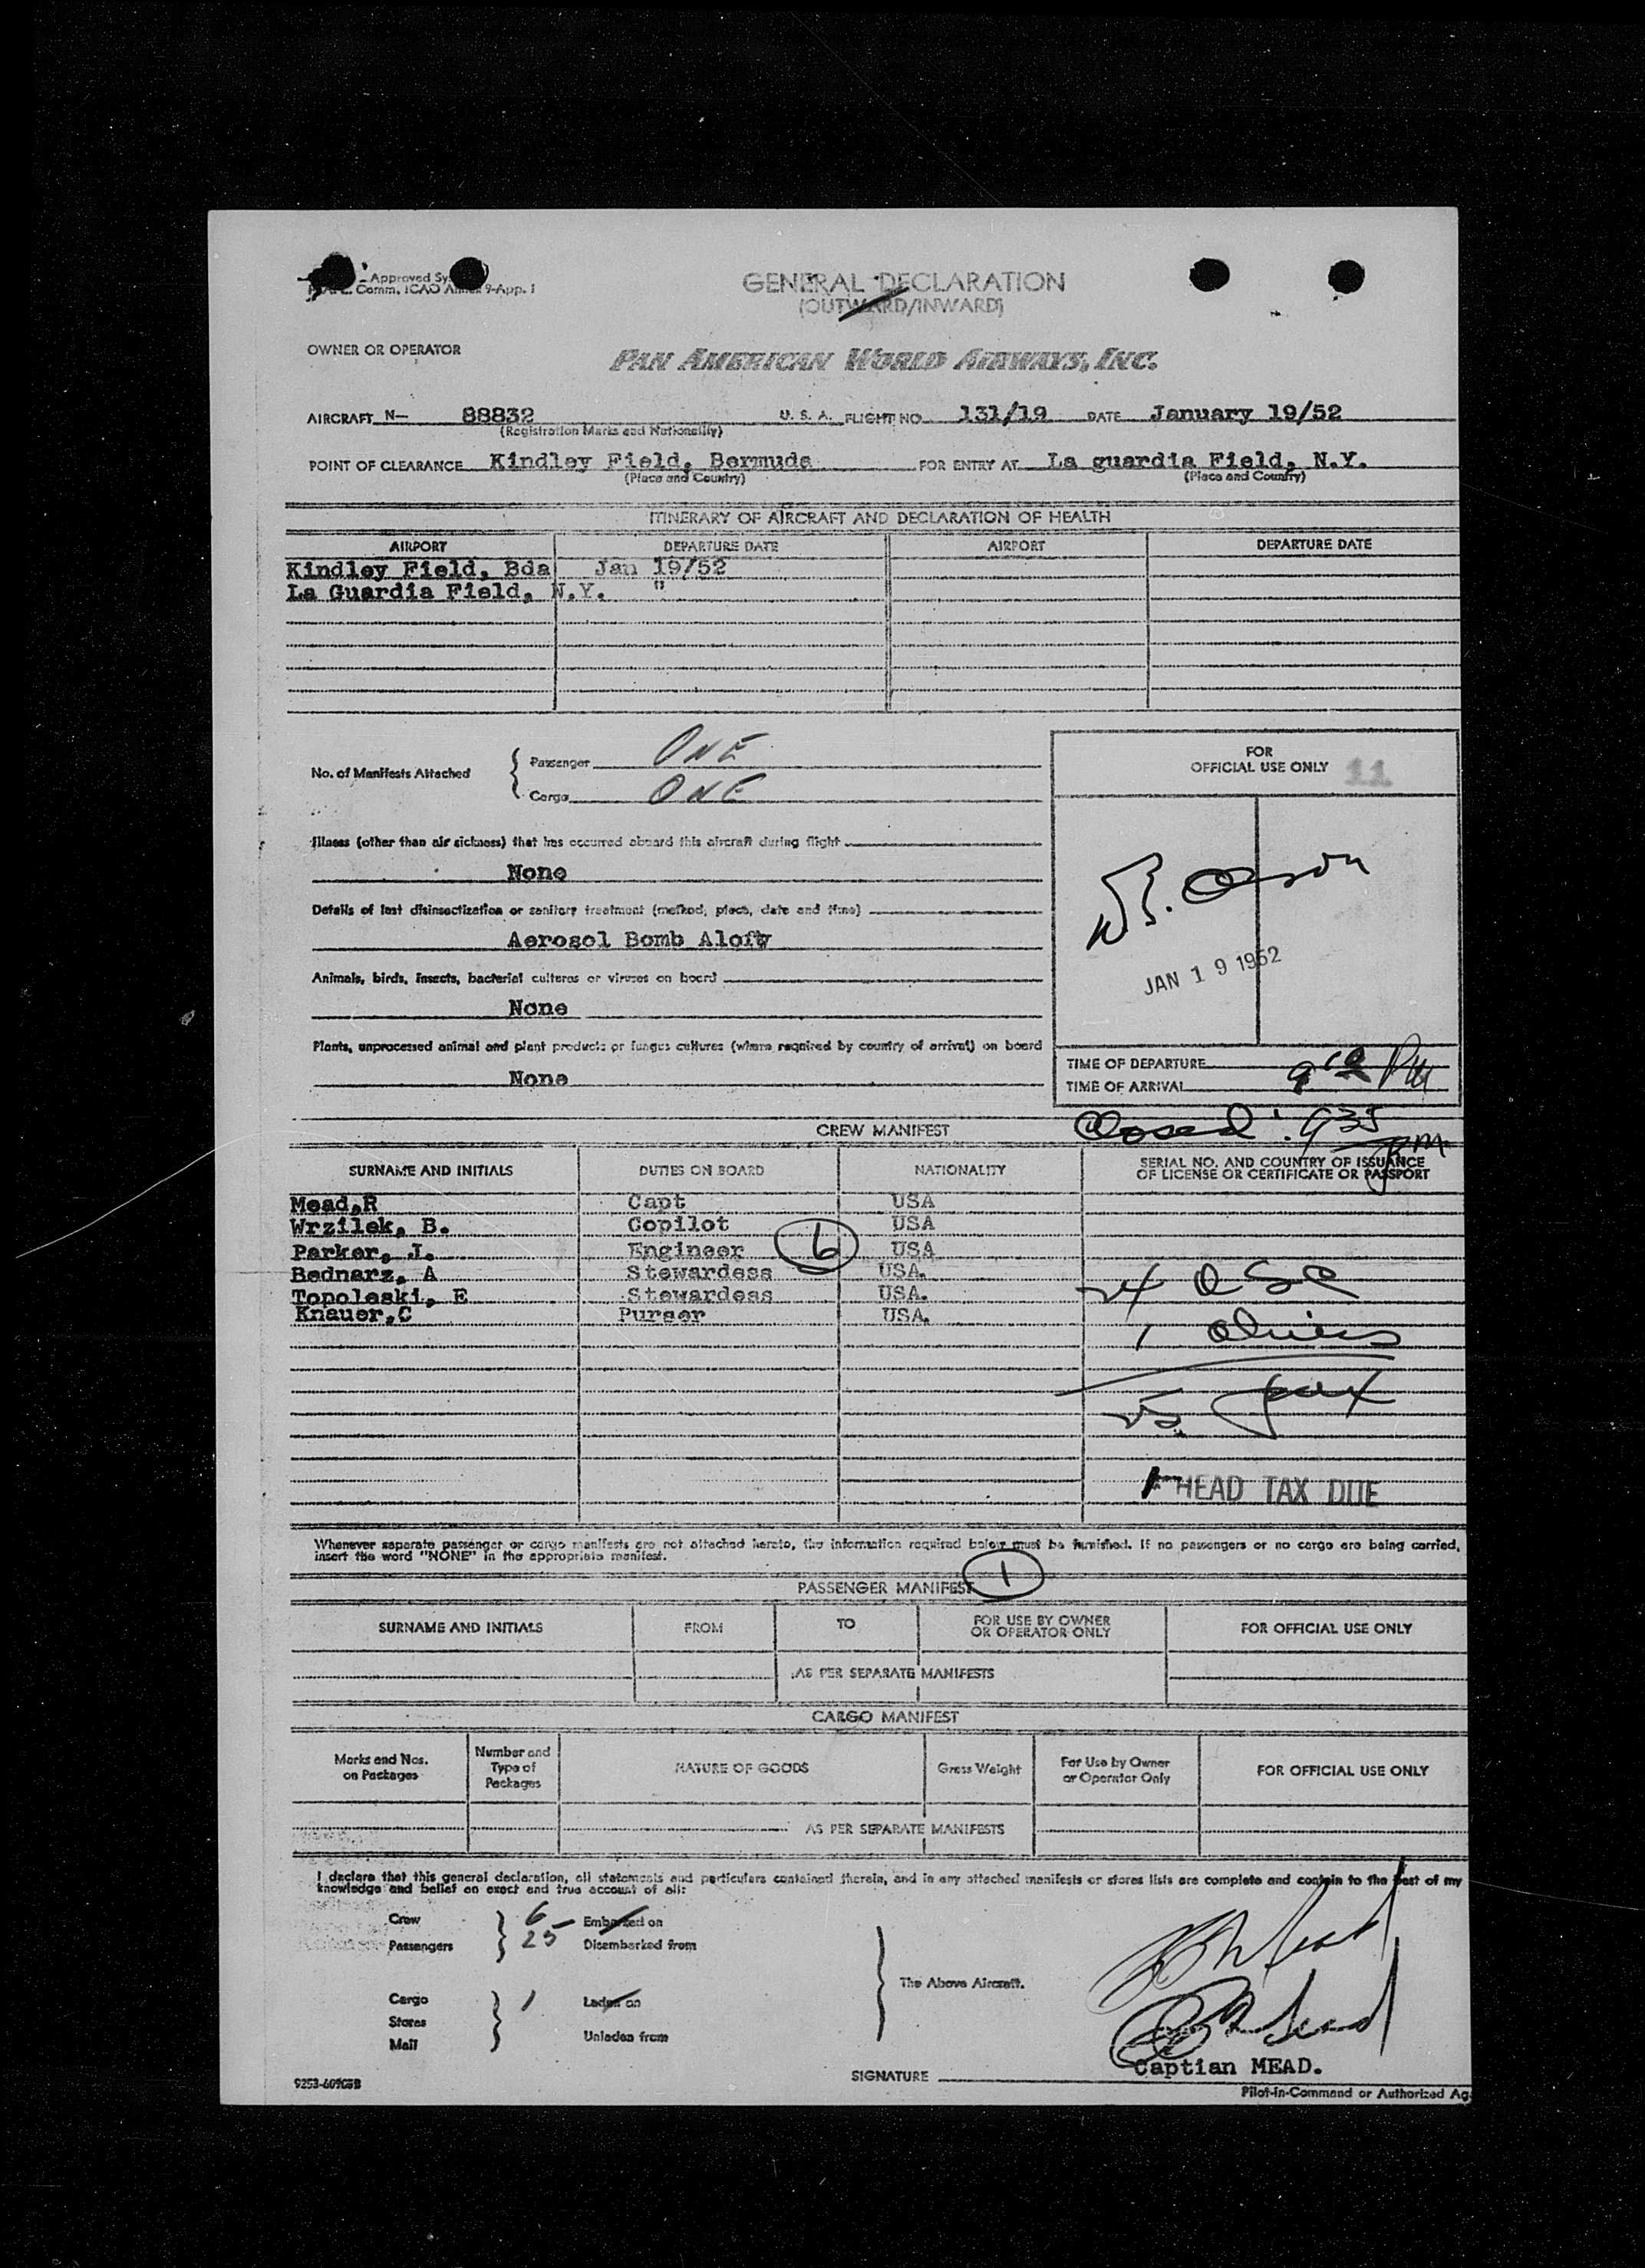 Approved Sy
Comm. ICAO Annex 9-App. 1
GENERAL DECLARATION
(OUTWARD/INWARD)
OWNER OR OPERATOR
PAN AMERICAN WORLD AIRWAYS, INC.
AIRCRAFT N- 88832 U. S. A. FLIGHT NO. 131/19 DATE January 19/52
(Registration Marks and Nationality)
POINT OF CLEARANCE Kindley Field, Bermuda FOR ENTRY AT La guardia Field, N.Y.
(Place and Country) (Place and Country)
ITINERARY OF AIRCRAFT AND DECLARATION OF HEALTH
AIRPORT DEPARTURE DATE AIRPORT DEPARTURE DATE
Kindley Field, Bda Jan 19/52
La Guardia Field, N.Y. "
No. of Manifests Attached
Passenger ONE
Cargo ONE
FOR
OFFICIAL USE ONLY 11
Illness (other than air sickness) that has occurred aboard this aircraft during flight
None
Details of last disinsectization or sanitary treatment (method, place, date and time)
Aerosol Bomb Aloft
JAN 19 1952
Animals, birds, insects, bacterial cultures or viruses on board
None
Plants, unprocessed animal and plant products or fungus cultures (where required by country of arrival) on board
None
TIME OF DEPARTURE
TIME OF ARRIVAL 9 10 PM
Closed: 935 pm
CREW MANIFEST
SURNAME AND INITIALS DUTIES ON BOARD NATIONALITY SERIAL NO. AND COUNTRY OF ISSUANCE
OF LICENSE OR CERTIFICATE OR PASSPORT
Mead,R Capt USA
Wrzilek, B. Copilot USA
6
Parker, J. Engineer USA
Bednarz, A Stewardess USA.
Topoleski, E Stewardess USA.
Knauer,C Purser USA.
24 USC
1 Aliens
25 pax
1 HEAD TAX DUE
Whenever separate passenger or cargo manifests are not attached hereto, the information required below must be furnished. If no passengers or no cargo are being carried,
insert the word "NONE" in the appropriate manifest.
PASSENGER MANIFEST 1
SURNAME AND INITIALS FROM TO FOR USE BY OWNER
OR OPERATOR ONLY FOR OFFICIAL USE ONLY
AS PER SEPARATE MANIFESTS
CARGO MANIFEST
Marks and Nos.
on Packages Number and
Type of
Packages NATURE OF GOODS Gross Weight For Use by Owner
or Operator Only FOR OFFICIAL USE ONLY
AS PER SEPARATE MANIFESTS
I declare that this general declaration, all statements and particulars contained therein, and in any attached manifests or stores lists are complete and contain to the best of my
knowledge and belief an exact and true account of all:
Crew 6 Embarked on
Passengers 25 Disembarked from
The Above Aircraft.
Cargo 1 Laden on
Stores
Mail Unladen from
SIGNATURE Captian MEAD.
Pilot-in-Command or Authorized Ag